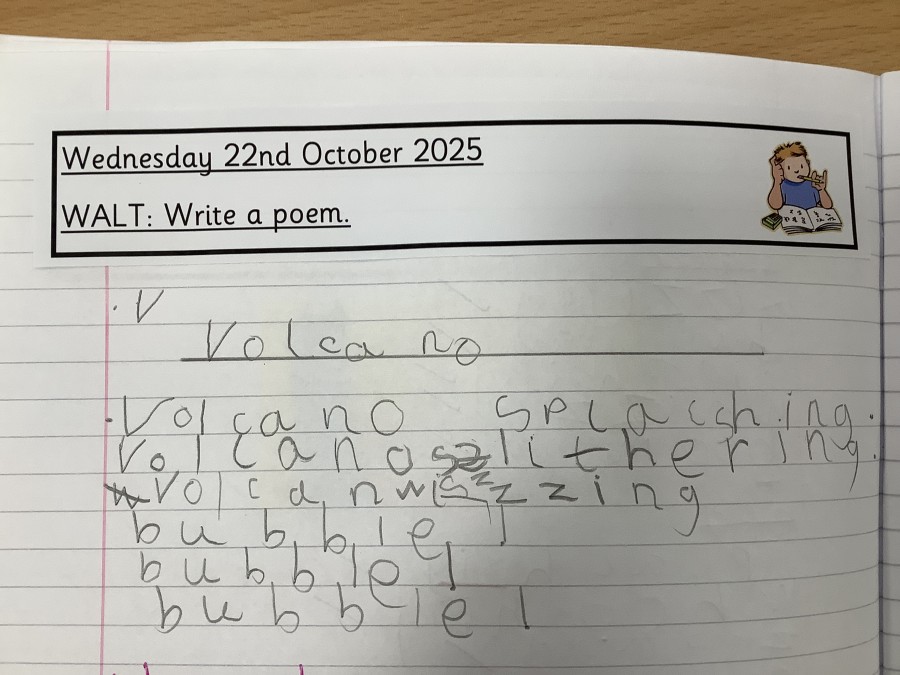 Wednesday 22nd October 2025
WALT: Write a poem.
. V
Volcano
.Volcano splacshing.
Volcano slithering.
Volcan wizzzing
bubble!
bubble!
bubble!